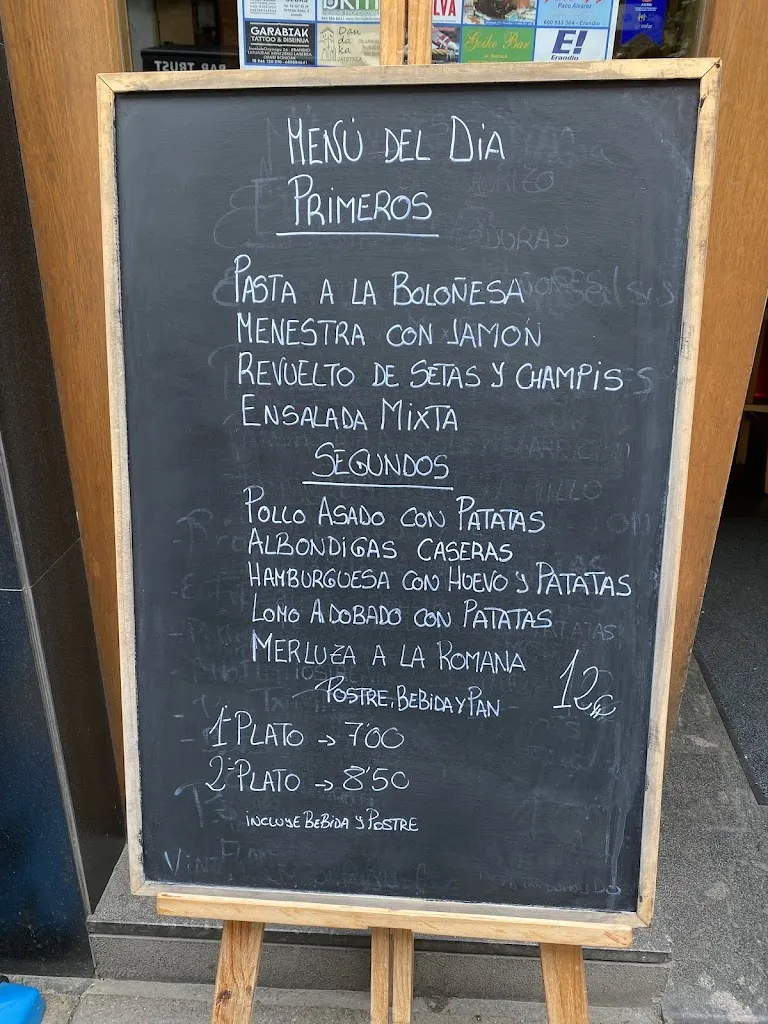 GARABIAK
TATTOO & DISEINUA
Dan
da
ka
Goiko Bar
E!
Erandio
BAR TRUST
MENÚ DEL DÍA
PRIMEROS
PASTA A LA BOLOÑESA
MENESTRA CON JAMÓN
REVUELTO DE SETAS Y CHAMPIS
ENSALADA MIXTA
SEGUNDOS
POLLO ASADO CON PATATAS
ALBONDIGAS CASERAS
HAMBURGUESA CON HUEVO Y PATATAS
LOMO ADOBADO CON PATATAS
MERLUZA A LA ROMANA
POSTRE, BEBIDA Y PAN
12€
1º PLATO → 7'00
2º PLATO → 8'50
INCLUYE BEBIDA Y POSTRE